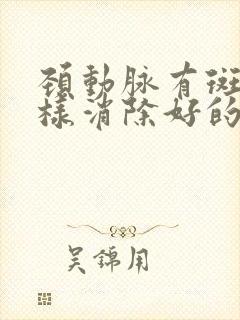 頸動脉有斑
樣消除好的
吴錦用